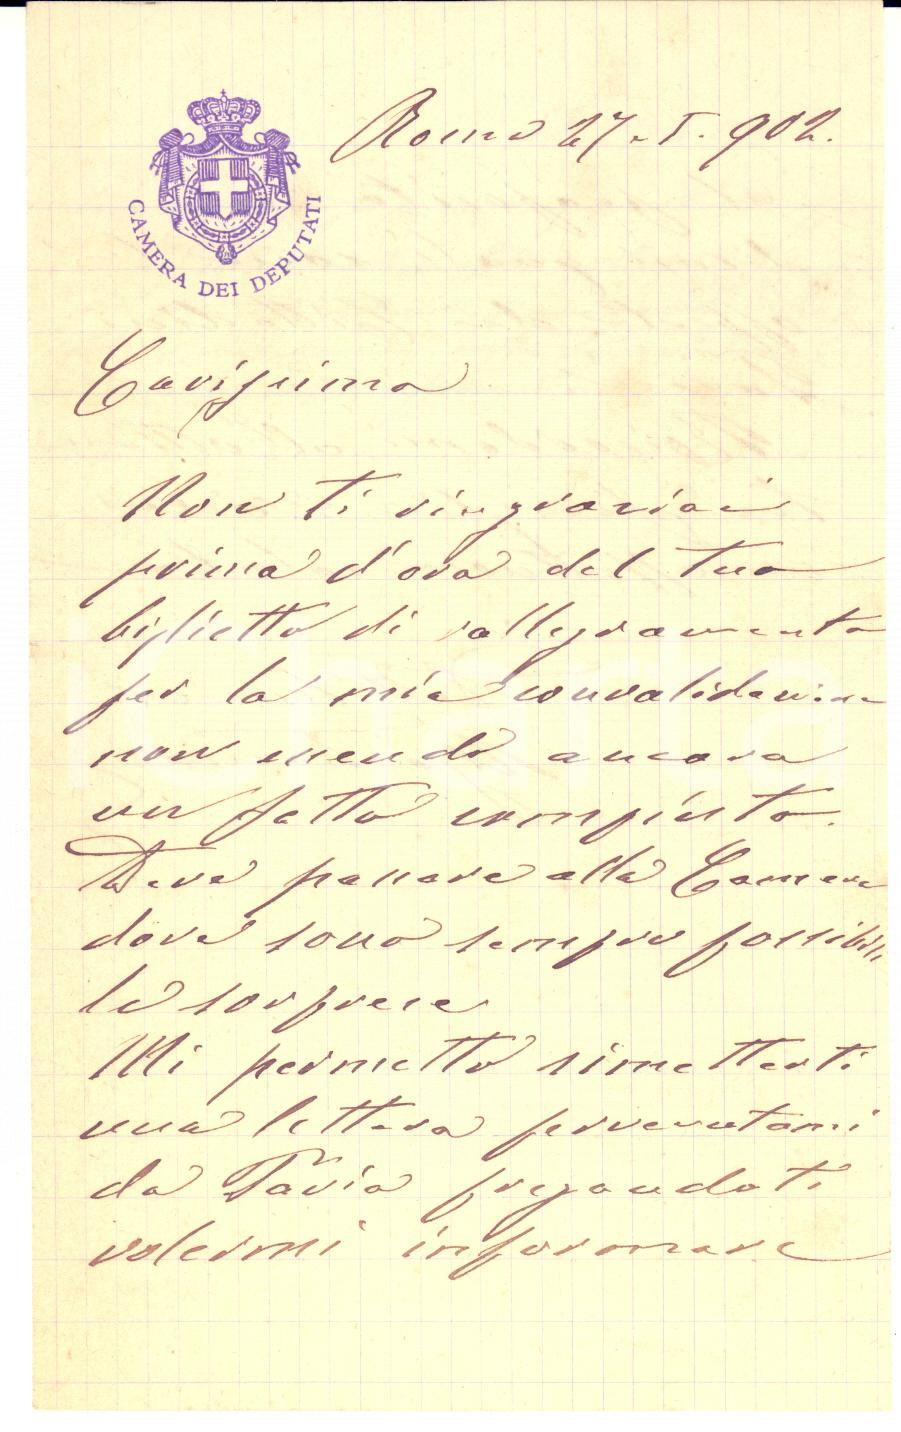 CAMERA DEI DEPUTATI
Roma 27-5-902.
Carissimo
Non ti ringraziai
prima d'ora del tuo
biglietto di rallegramento
per la mia convalidazione
non essendo ancora
un fatto compiuto.
Deve passare alla Camera
dove sono sempre possibili
le sorprese
Mi permetto rimetterti
una lettera pervenutami
da Pavia pregandoti
volermi informare